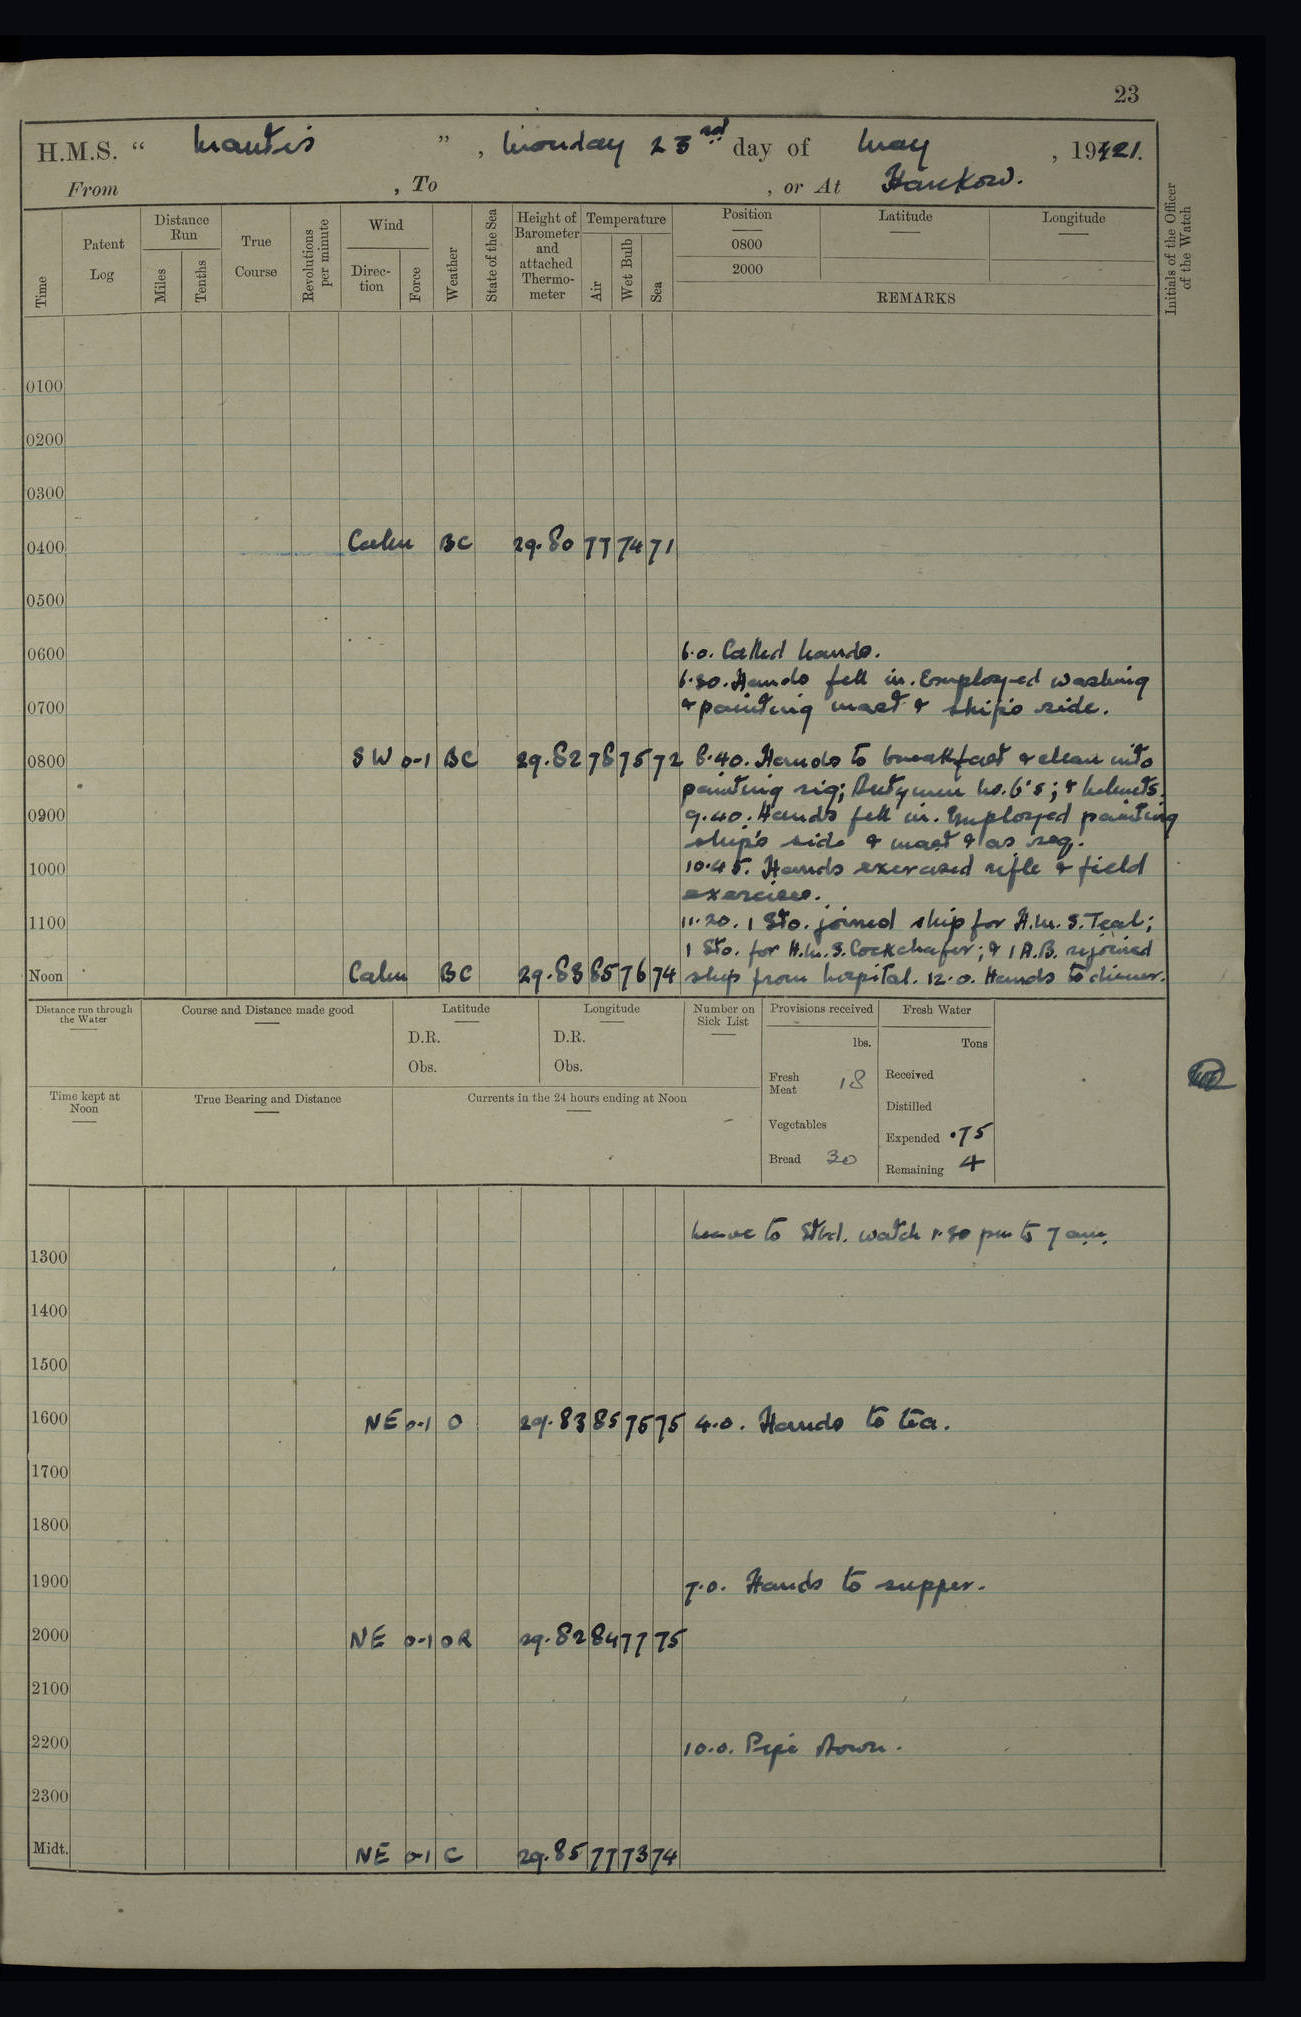 23
H.M.S. “ Mantis ” , Monday 23rd day of May , 1921.
From , To , or At Hankow.
Time
Patent Log
Distance Run
Miles
Tenths
True Course
Revolutions per minute
Wind
Direc-tion
Force
Weather
State of the Sea
Height of Barometer and attached Thermo-meter
Temperature
Air
Wet Bulb
Sea
Position
0800
2000
Latitude
Longitude
REMARKS
Initials of the Officer of the Watch
0100
0200
0300
0400 Calm BC 29.80 77 74 71
0500
0600 6.0. Called hands.
6.30. Hands fell in. Employed washing
0700 & painting mast & ship's side.
0800 SW 0-1 BC 29.82 78 75 72 8.40. Hands to breakfast & clean into
painting rig; Dutymen No. 6's; & helmets.
0900 9.40. Hands fell in. Employed painting
ship's side & mast & as req.
1000 10.45. Hands exercised rifle & field
exercises.
1100 11.20. 1 Sto. joined ship for H.M.S. Teal;
1 Sto. for H.M.S. Cockchafer; & 1 A.B. rejoined
Noon Calm BC 29.83 85 76 74 ship from hospital. 12.0. Hands to dinner.
Distance run through the Water
Course and Distance made good
Latitude
D.R.
Obs.
Longitude
D.R.
Obs.
Number on Sick List
Provisions received
lbs.
Fresh Meat 18
Vegetables
Bread 30
Fresh Water
Tons
Received
Distilled
Expended .75
Remaining 4
Time kept at Noon
True Bearing and Distance
Currents in the 24 hours ending at Noon
Leave to Stbd. watch 1.30 pm to 7 am.
1300
1400
1500
1600 NE 0-1 O 29.83 85 75 75 4.0. Hands to tea.
1700
1800
1900 7.0. Hands to supper.
2000 NE 0-1 OR 29.82 84 77 75
2100
2200 10.0. Pipe Down.
2300
Midt. NE 0-1 C 29.85 77 73 74